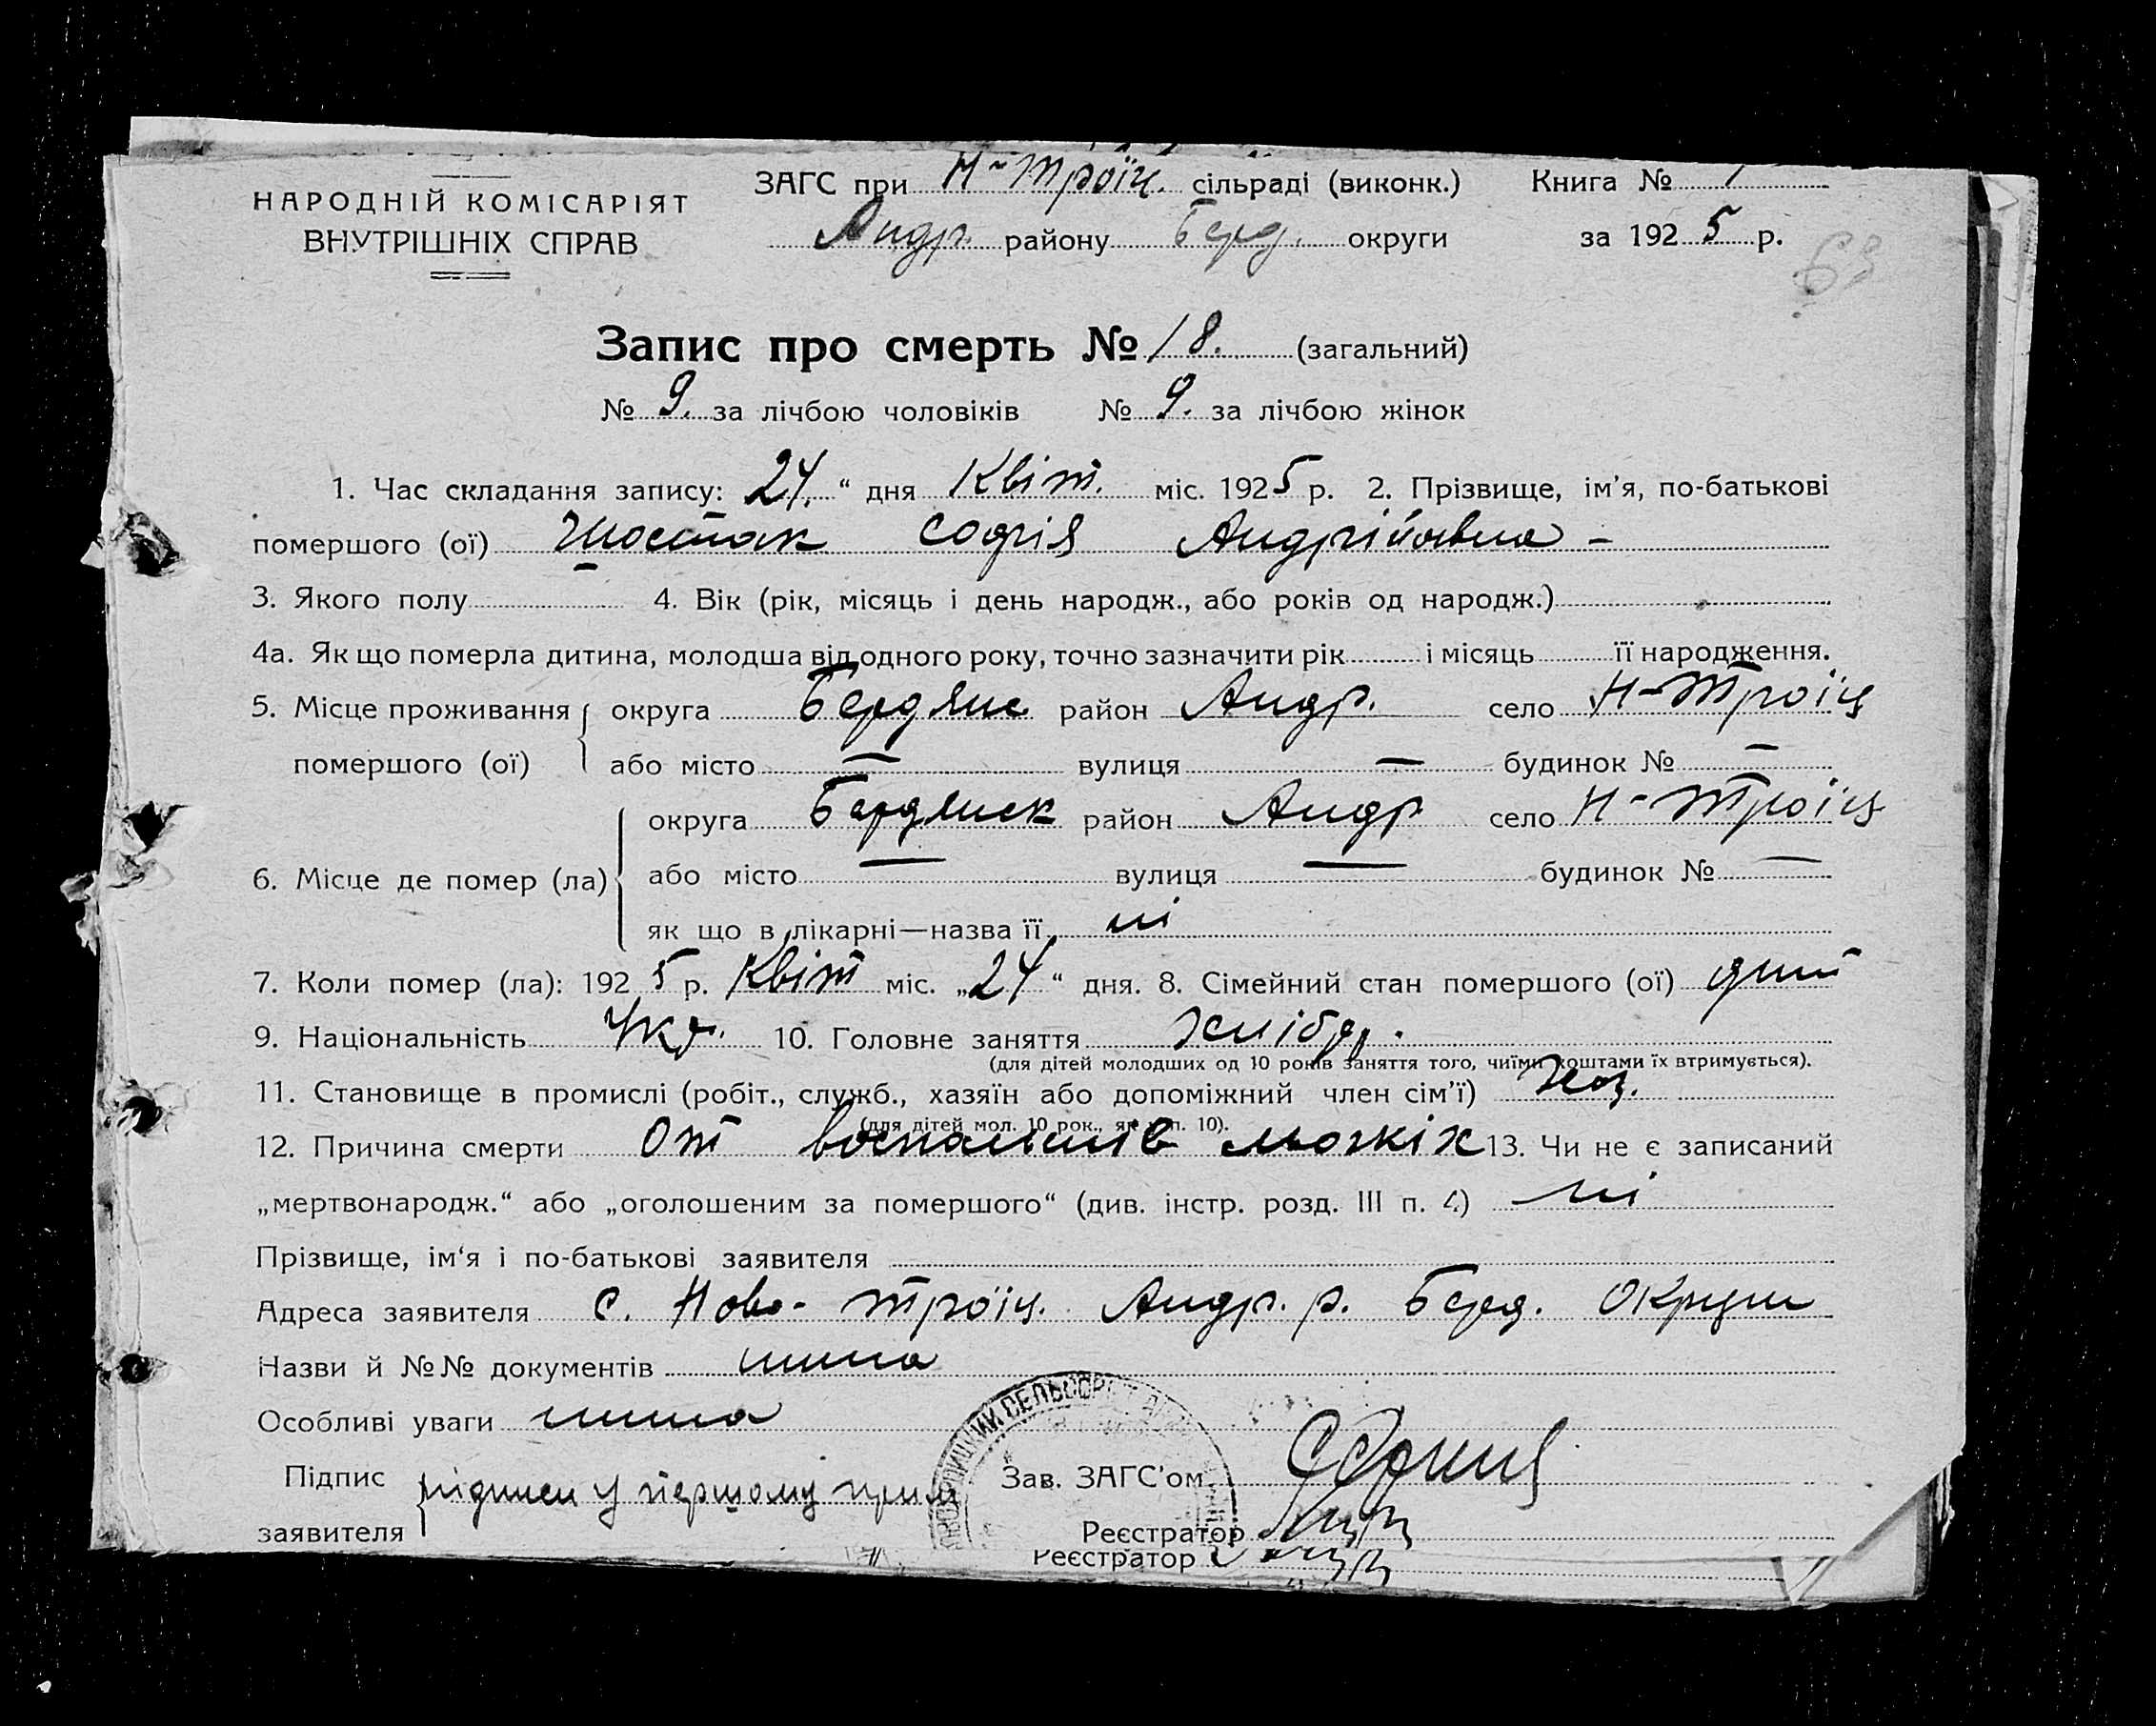 НАРОДНІЙ КОМІСАРІЯТ
ВНУТРІШНІХ СПРАВ
ЗАГС при Н-Троїц. сільраді (виконк.) Книга № 1
Андр. району Берд. округи за 1925 р.
69
Запис про смерть № 18. (загальний)
№ 9. за лічбою чоловіків № 9. за лічбою жінок
1. Час складання запису: 24. “ дня Квіт. міс. 1925 р. 2. Прізвище, ім’я, по-батькові
помершого (ої) Шостак Софія Андрійовна -
3. Якого полу 4. Вік (рік, місяць і день народж., або років од народж.)
4а. Як що померла дитина, молодша від одного року, точно зазначити рік і місяць її народження.
5. Місце проживання округа Бердянс район Андр. село Н-Троїц
помершого (ої) або місто — вулиця — будинок № —
6. Місце де помер (ла) округа Бердянск район Андр село Н-Троїц
або місто — вулиця — будинок № —
як що в лікарні—назва її ні
7. Коли помер (ла): 1925 р. Квіт міс. „24“ дня. 8. Сімейний стан помершого (ої) дит
9. Національність Укр. 10. Головне заняття хлібор.
(для дітей молодших од 10 років заняття того, чиїми коштами їх втримується).
11. Становище в промислі (робіт., служб., хазяїн або допоміжний член сім’ї) Хаз.
(для дітей мол. 10 рок., як п. 10).
12. Причина смерти От воспаленія 13. Чи не є записаний
„мертвонародж.“ або „оголошеним за помершого“ (див. інстр. розд. III п. 4) ні
Прізвище, ім‘я і по-батькові заявителя
Адреса заявителя с. Ново-Троїц. Андр. р. Берд. Округи
Назви й №№ документів нима
Особливі уваги нима
Підпис заявителя підписи у першому прим
Зав. ЗАГС’ом
Реєстратор
Реєстратор